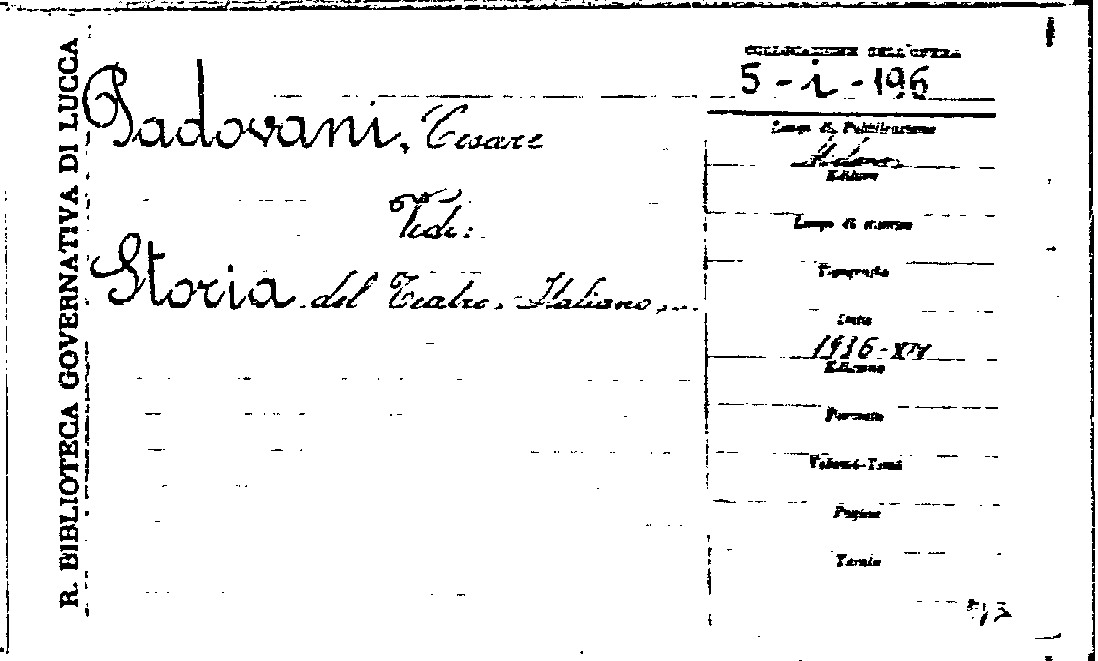 R. BIBLIOTECA GOVERNATIVA DI LUCCA
Padovani, Cesare
Vedi:
Storia del Teatro Italiano,...
COLLOCAZIONE DELL'OPERA
5 - i - 196
Luogo di Pubblicazione
Milano
Editore
Luogo di stampa
Tipografia
Data
1936-XIV
Edizione
Formato
Volumi-Tomi
Pagine
Tavole